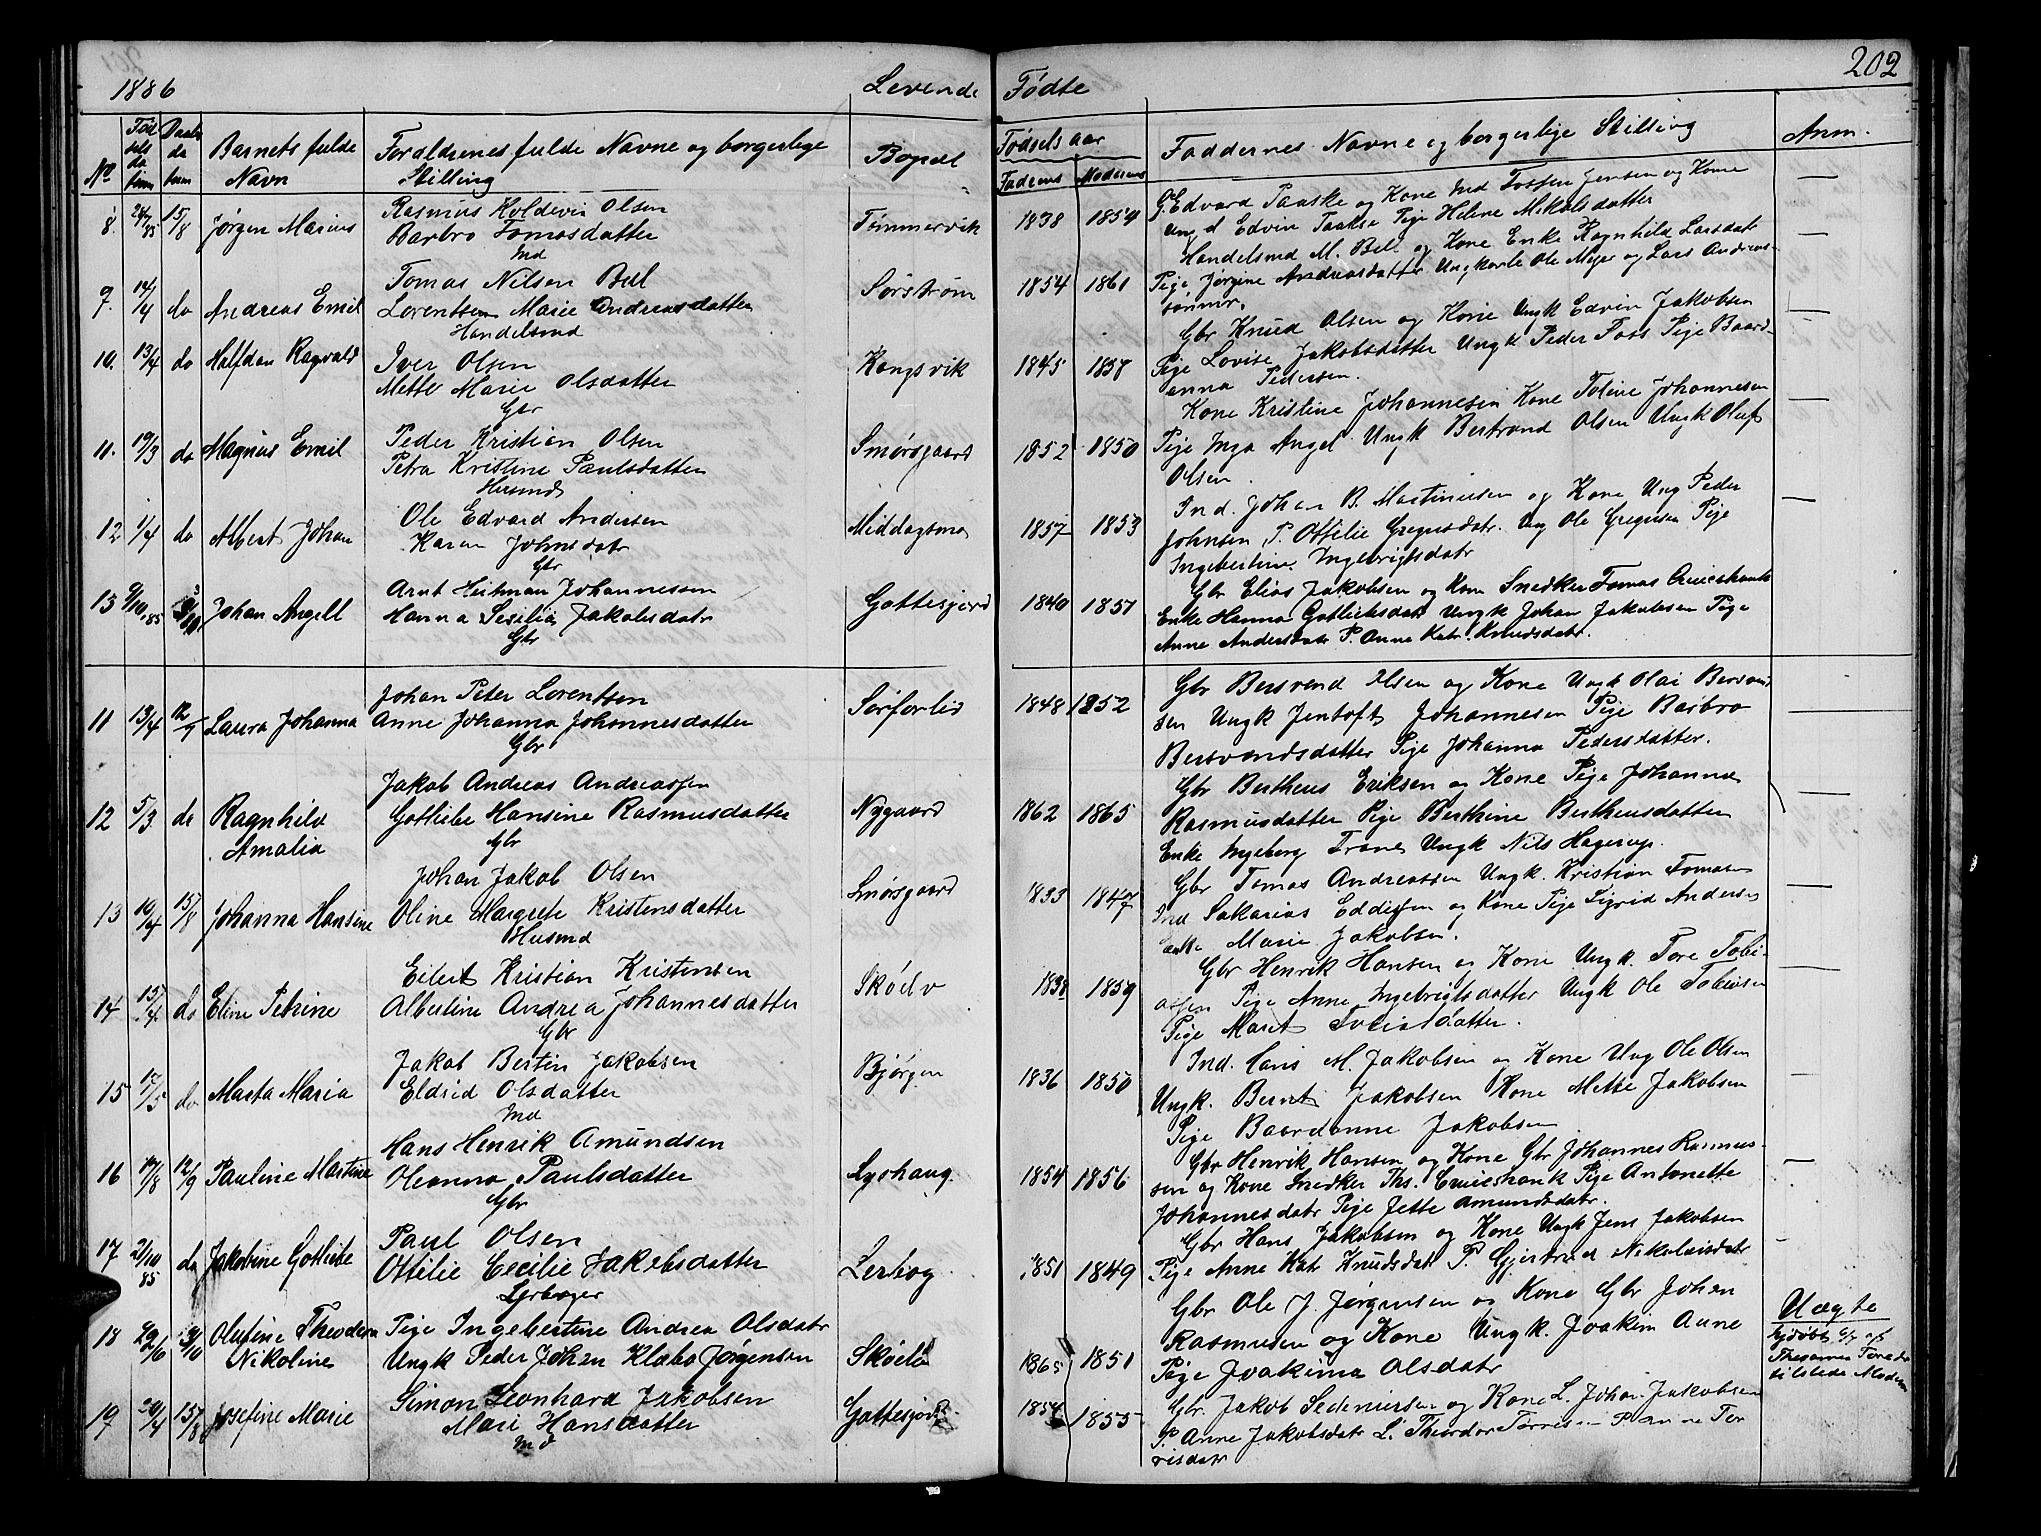 202
1886 Levende Fødte
No Fødselsdatum Daabsdatum Barnets fulde Navn Forældrenes fulde Navne og borgerlige Stilling Bopæl Fødselsaar Faderens Moderens Faddernes Navne og borgerlige Stilling Anm.
8. 15/8 Jørgen Marius
Rasmus Koldevin Olsen
Barbro Tomasdatter
Ind
Tømmervik 1838 1854
Edvard Paaske og Kone Ind Tosten Jensen og Kone
Edvin Paaske Pige Helene Mikalsdatter
Handelsmd M. Bul og Kone Enke Ragnhild Larsdatr
9. 14/4 do Andreas Emil
Tomas Nilsen Bul
Lorentsen Marie Andreasdatter
Handelsmd
Sørstrøm 1854 1861
Pige Jørgine Andreasdatter Ungkarle Ole Meyer og Lars Andreas-
sønner.
10. 13/4 do Halfdan Ragvald
Iver Olsen
Mette Marie Olsdatter
Gbr
Kongsvik 1845 1857
Gbr Knud Olsen og Kone Ungk Edvin Jakobsen
Pige Lovise Jakobsdatter Ungk Peder Foss Pige Baard-
anna Pedersen.
11. 19/3 do Magnus Emil
Peder Kristian Olsen
Petra Kristine Paulsdatter
Husmd
Smørsgaard 1852 1850
Kone Kristine Johannesen Kone Toline Johannesen
Pige Inga Angel Ungk Bertrand Olsen Ungk Oluf
Olsen.
12 1/4 do Albert Johan
Ole Edvard Andersen
Karen Johnsdatr
Gbr
Middagsmo 1857 1853
Ind. Johan B. Martinussen og Kone Ung Peder
Johnsen P. Ottilie Gregusdatr. Ung Ole Gregusen Pige
Ingebertine Ingebrigtsdatr
13 9/10 85 Johan Angell
Arnt Heitman Johannessen
Hanna Sesilia Jakobsdatr
Gbr
Gottesjord 1840 1851
Gbr Elias Jakobsen og Kone Snedker Tomas Cruickshank
Enke Hanna Gotliebsdatr Ungk Johan Jakobsen Pige
Anne Andersdatr P. Anne Katr. Knudsdatr.
11 13/4 12/7 Laura Johanna
Johan Peter Lorentsen
Anne Johanna Johannesdatter
Gbr
Sørforlid 1848 1852
Gbr Bersvend Olsen og Kone Ungk Olai Bersvend
sen Ungk Jentoft Johannesen Pige Barbro
Bersvendsdatter Pige Johanna Pedersdatter.
12 5/3 do Ragnhild Amalia
Jakob Andreas Andreassen
Gotliebe Hansine Rasmusdatter
Gbr
Nygaard 1862 1865
Gbr Bertheus Eriksen og Kone Pige Johanna
Rasmusdatter Pige Berthine Bertheusdatter
Enke Ingeborg Trane Ungk Nils Hagerup.
13 10/4 15/8 Johanna Hansine
Johan Jakob Olsen
Oline Margrete Kristensdatter
Husmd
Smørsgaard 1833 1847
Gbr Tomas Andreassen Ungk. Kristian Tomasen
Ind Sakarias Eddissen og Kone Pige Sigrid Anders
Marie Jakobsen.
14 15/4 do Eline Petrine
Eilert Kristian Kristensen
Albertine Andrea Johannesdatter
Gbr
Skødv 1838 1859
Gbr Henrik Hansen og Kone Ungk. Tore Tobi-
assen Pige Anne Ingebrigtsdatter Ungk Ole Tobiassen
Pige Maret Tobiasdatter.
15 17/5 do Marta Maria
Jakob Bertin Jakobsen
Eldrid Olsdatter
Ind
Bjørgen 1836 1850
Ind. Hans M. Jakobsen og Kone Ung Ole Olsen
Ungk. Bernt Jakobsen Kone Mette Jakobsen
Pige Baardanne Jakobsen
16 12/9 Pauline Martine
Hans Henrik Amundsen
Oleanna Paulsdatter
Gbr
Lyshaug. 1854 1856
Gbr Henrik Hansen og Kone Gbr Johannes Rasmus-
sen og Kone Snedker Ths. Cruickshank Pige Antonette
Johannesdatr Pige Jette Amundsdatr.
17 21/10 85 do Jakobine Gotliebe
Paul Olsen
Ottilie Cecilie Jakobsdatter
Lerbog 1851 1849
Gbr Hans Jakobsen og Kone Ungk Jens Jakobsen
Pige Anne Katr Knudsdatr P. Gjertrud Nikolaisdatr
18 29/6 3/10 Olufine Theodora Nikoline
Pige Ingebertine Andrea Olsdatr
Ungk Peder Johan Klæbo Jørgensen
1865 1851
Gbr Ole J. Jørgensen og Kone Gbr Johan
Rasmusen og Kone Ungk. Joakim Aune
Pige Joakima Olsdatr
Uægte
19 15/8 Josefine Marie
Simon Leonhard Jakobsen
Mari Hansdatter
Ind
Gottesjord 1854 1855
Gbr. Jakob Pedersen og Kone L. Johan Jakobsen
P. Anne Jakobsdatr L. Theodor Torresen
risdatr